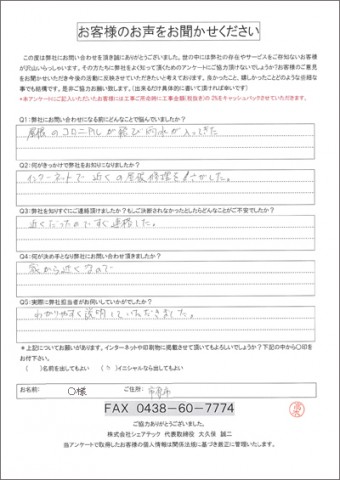 お客様のお声をお聞かせください
この度は弊社にお問い合わせを頂き誠にありがとうございました。世の中には弊社の存在やサービスをご存知ないお客様
が沢山いらっしゃいます。その方たちに弊社をよく知って頂くためのアンケートにご協力頂けないでしょうか?お客様のご意見
をお聞かせいただき今後の活動に反映させていただきたいと考えております。良かったこと、嬉しかったことどのような些細な
事でも結構です。是非ご協力お願い致します。(出来るだけ具体的に書いて頂ければ幸いです)
*本アンケートにご記入いただいたお客様には工事ご完成時に工事金額(税抜き)の2%をキャッシュバックさせていただきます。
Q1:弊社にお問い合わせになる前にどんなことで悩んでいましたか?
屋根のコロニアルが飛び雨水が入ってきた
Q2:何がきっかけで弊社をお知りになりましたか?
インターネットで近くの屋根修理をさがした。
Q3:弊社を知りすぐにご連絡頂けましたか?もしご決断されなかったとしたらどんなことがご不安でしたか?
近くだったのですぐ連絡した。
Q4:何が決め手となり弊社にお問い合わせ頂きましたか?
家から近くなので
Q5:実際に弊社担当者がお伺いしていかがでしたか?
わかりやすく説明していただきました。
*上記についてお願いがあります。インターネットや印刷物に掲載させて頂いてもよろしいでしょうか?下記の中から〇印を
お付下さい。
( )名前を出してもよい ( )イニシャルなら出してもよい
お名前: 〇様 ご住所: 市原市
FAX 0438-60-7774
ご協力ありがとうございました。
株式会社シェアテック 代表取締役 大久保 誠二
当アンケートで取得したお客様の個人情報は関係法規に基づき厳正に管理いたします。